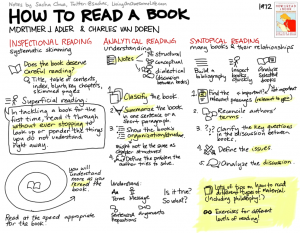 Notes by Sacha Chua, Twitter @sachac, LivingAnAwesomeLife.com
1972
HOW TO READ A BOOK
MORTIMER J. ADLER & CHARLES VAN DOREN
INSPECTIONAL READING
systematic skimming
Does the book deserve
careful reading?
Title, table of contents,
index, blurb, key chapters,
skimmed pages
Superficial reading
In tackling a book for the
first time, read it through
without ever stopping to
look up or ponder the things
you do not understand
right away.
you will
understand
more as
you reread
the book.
Read at the speed appropriate
for the book
ANALYTICAL READING
understanding
Notes
structural
conceptual
dialectical
(discussion
between texts)
1. Classify the book
2. Summarize the book
in one sentence or a
short paragraph
3. Show the book's
organization/structure
might not be the same as
chapter structure!
4. Define the problem the
author tries to solve.
Understand:
Terms
Message
Arguments
Is it true?
So what?
SYNTOPICAL READING
many books & their relationships
Build a
bibliography
Inspect
books
Analyze
Selected
Books
1. Find the important
relevant passages (relevant to you)
2. Reconcile authors'
terms
3. Clarify the key questions
in the discussion between
books
4. Define the issues
5. Analyze the discussion
Lots of tips on how to read
different types of material
(including philosophy!)
Exercises for different
levels of reading!